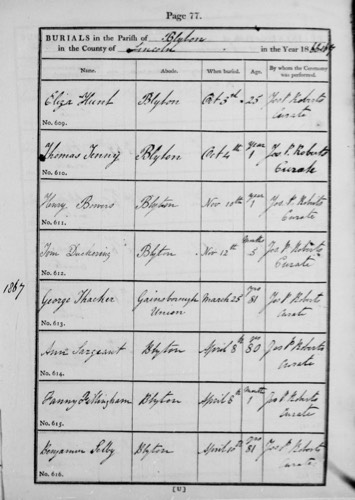 Page 77.
BURIALS in the Parish of Blyton
in the County of Lincoln in the Year 1866-67
Name. Abode. When buried. Age. By whom the Ceremony was performed.
Eliza Hunt Blyton Oct 3rd 25 Jos P. Roberts Curate
No. 609.
Thomas Blyton Oct 4th year 1 Jos P. Roberts Curate
No. 610.
Henry Bowers Blyton Nov 10th year 1 Jos P. Roberts Curate
No. 611.
Tom Duckering Blyton Nov 12th Months 5 Jos P. Roberts Curate
No. 612.
1867
George Thacker Gainsborough Union March 25 yrs 81 Jos P. Roberts Curate
No. 613.
Anne Sargeant Blyton April 8th yrs 80 Jos P. Roberts Curate
No. 614.
Fanny Blyton April 8th Month 1 Jos P. Roberts Curate
No. 615.
Benjamin Selby Blyton April yrs 81 Jos P. Roberts Curate
No. 616.